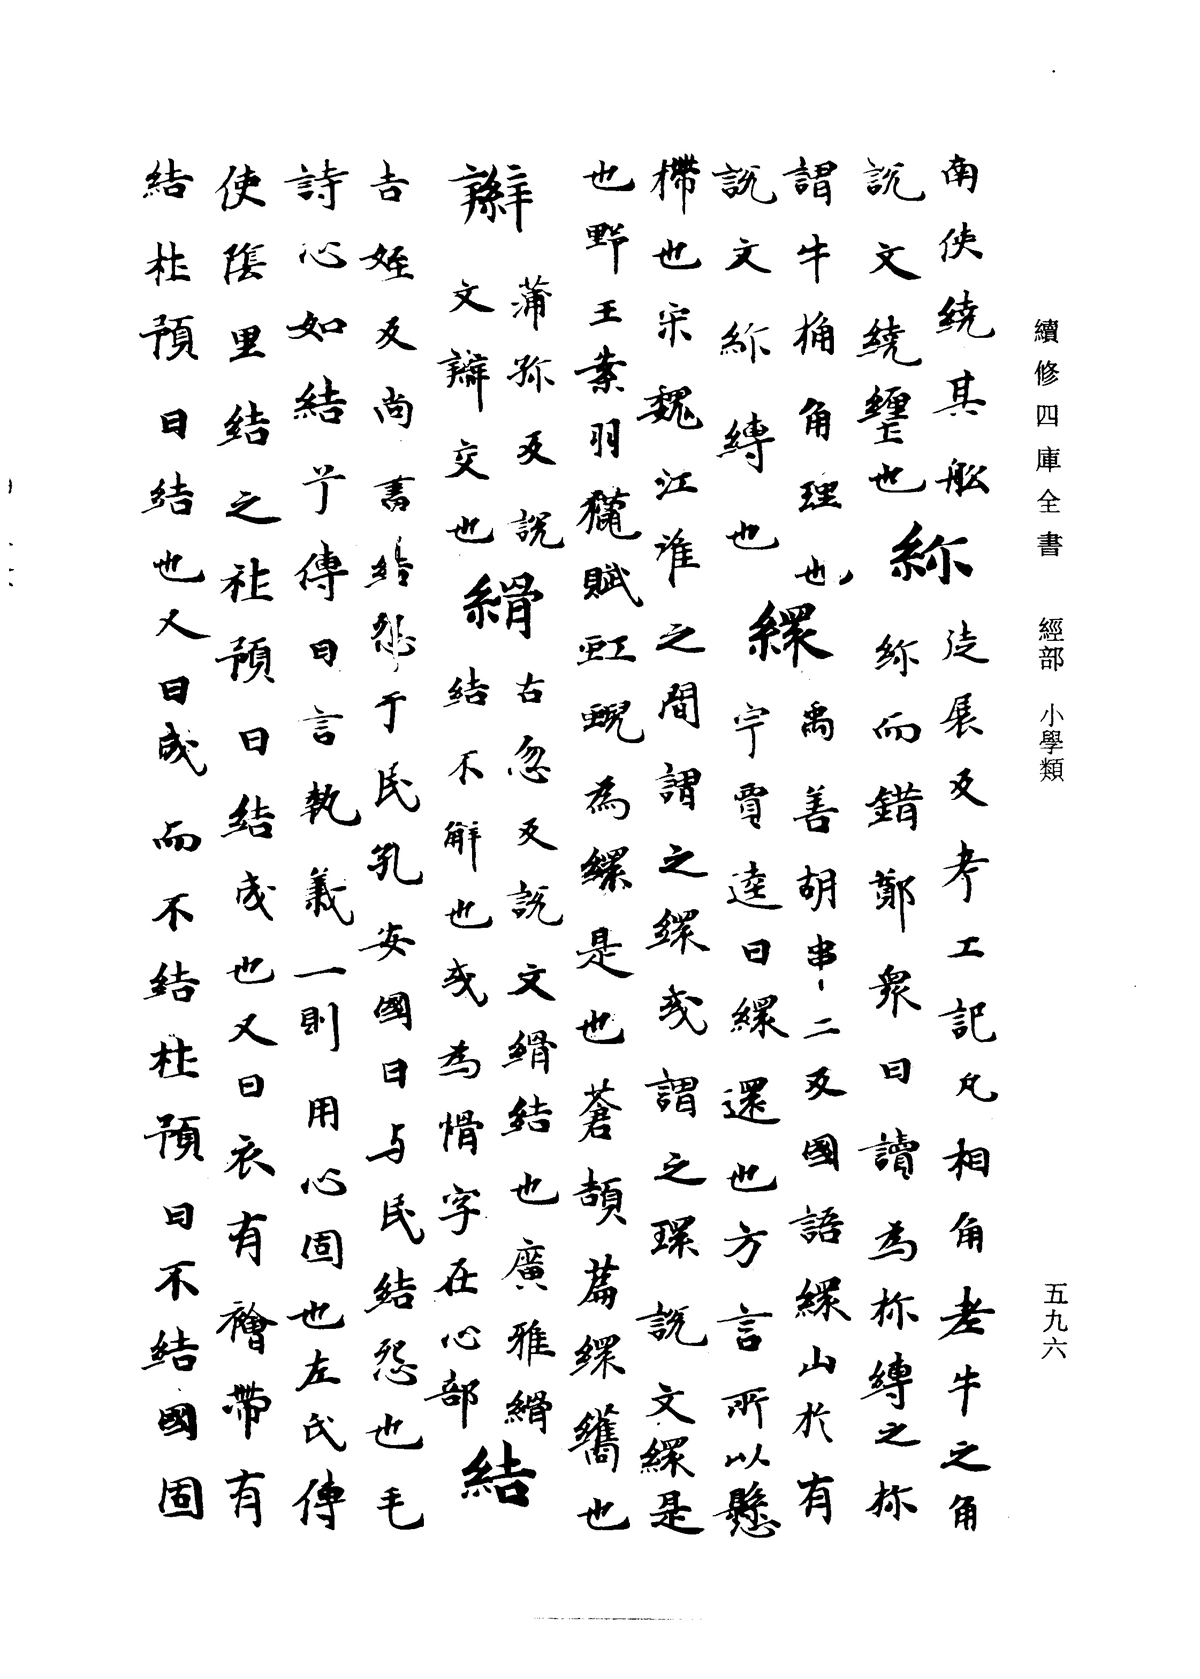 續修四庫全書 經部 小學類
五九六
南使繞其舩
說文繞纏也
紾
徒展反考工記凡相角老牛之角
紾而錯鄭衆曰讀為抮縳之抮
謂牛桷角理也
說文紾縳也
繯
禹善胡串二反國語繯山於有
宇賈逵曰繯還也方言所以懸
㯂也宋魏江淮之間謂之繯或謂之環說文繯是
也野王案羽獵賦虹蜺為繯是也蒼頡篇繯䌫也
辮
蒲殄反說
文辮交也
縎
古忽反說文縎結也廣雅縎
結不解也或為愲字在心部
結
吉姪反尚書結怨于民孔安國曰与民結怨也毛
詩心如結兮傳曰言執義一則用心固也左氏傳
使隂里結之杜預曰結成也又曰衣有襘帶有
結杜預曰結也又曰成而不結杜預曰不結國固